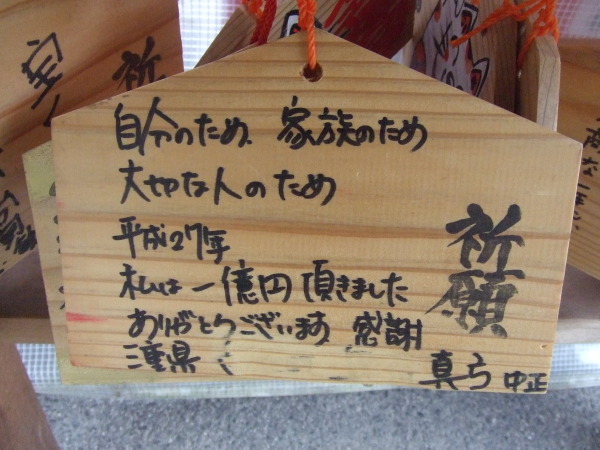 祈願
自分のため、家族のため
大切な人のため
平成27年
私は一億円頂きました
ありがとうございます。感謝
三重県
真弓 中正
祈